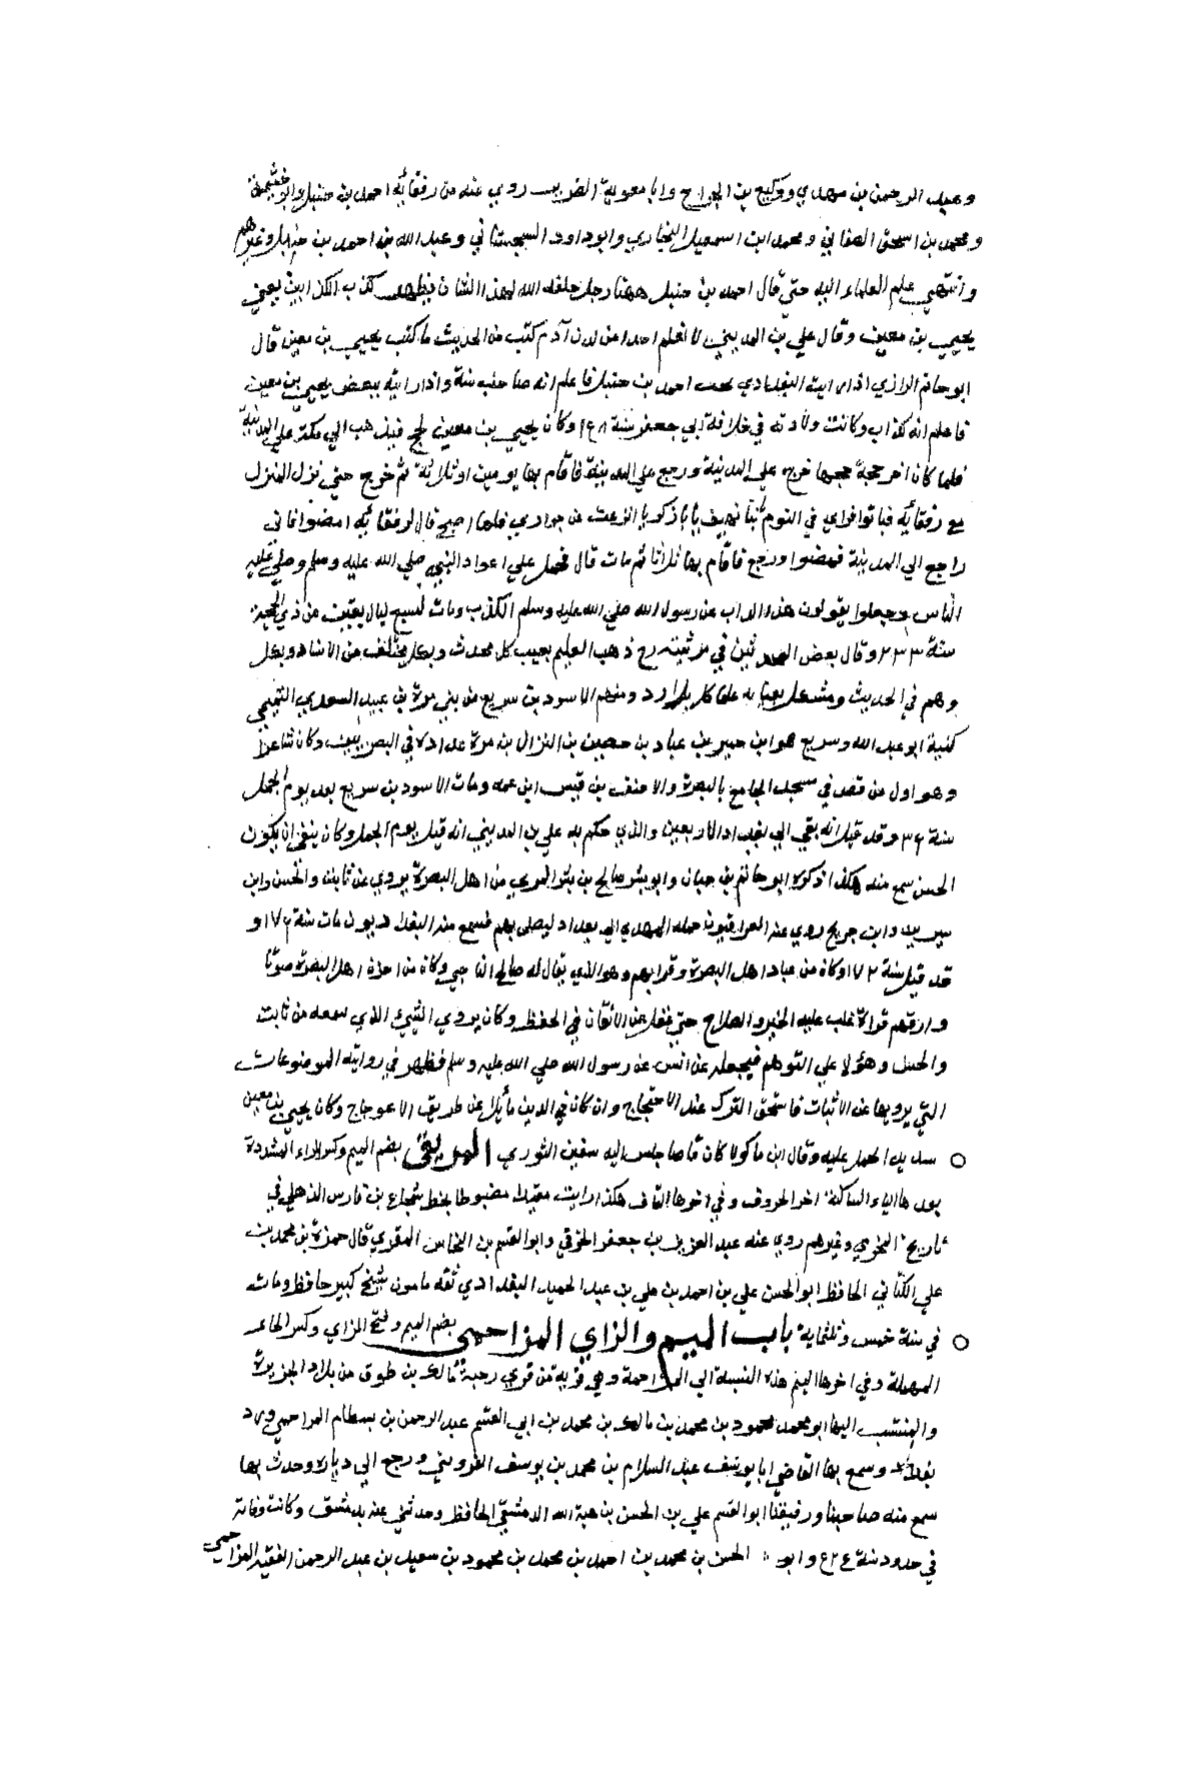 وعبد الرحمن بن مهدي ووكيع بن الجراح وابا معوية الضرير روي عنه من رفقائه احمد بن حنبل وابو خيثمة
ومحمد بن اسحق الصغاني ومحمد ابن اسمعيل البخاري وابو داود السجستاني وعبد الله بن احمد بن حنبل وغيرهم
وانتهي علم العلماء اليه حتي قال احمد بن حنبل ههنا رجل خلقه الله لهذا الشان فيظهر كذب الكذابين يعني
يحيي بن معين وقال علي بن المديني لا نعلم احدا من لدن آدم كتب من الحديث ما كتب يحيي بن معين قال
ابو حاتم الرازي اذا رايت البغدادي يحب احمد بن حنبل فاعلم انه صاحب سنة واذا رايته يبغض يحيي بن معين
فاعلم انه كذاب وكانت ولادته في خلافة ابي جعفر سنة ١٥٨ وكان يحيي بن معين يحج فيذهب الي مكة علي المدينة
فلما كان اخر حجة حجها خرج علي المدينة ورجع علي المدينة فاقام بها يومين او ثلاثة ثم خرج حتي نزل المنزل
مع رفقائه فباتوا فراي في النوم هاتفا يهتف يا ابا زكريا اترغب عن جواري فلما اصبح قال لرفقائه امضوا فاني
راجع الي المدينة فمضوا ورجع فاقام بها ثلاثا ثم مات قال فحمل علي اعواد النبي صلي الله عليه وسلم وصلي عليه
الناس وجعلوا يقولون هذا الذاب عن رسول الله صلي الله عليه وسلم الكذب ومات لسبع ليال بقيت من ذي الحجة
سنة ٢٣٣ وقال بعض المحدثين في مرثيته رح ذهب العليم بعيب كل محدث وبكل مختلف من الاسناد وبكل
وهم في الحديث ومشكل يعيا به علماء كل بلاد ومنهم الاسود بن سريع من بني مرة بن عبيد السعدي التميمي
كنية ابو عبد الله وسريع هو ابن حمير بن عباد بن حصين بن النزال بن مرة عداده في البصريين وكان شاعرا
وهو اول من قص في مسجد الجامع بالبصرة والاحنف بن قيس ابن عمه ومات الاسود بن سريع بعد يوم الجمل
سنة ٣٦ وقد قيل انه بقي الي بعد الاربعين والذي حكم به علي بن المديني انه قتل يوم الجمل وكان ينفي ان يكون
الحسن سمع منه هكذا ذكره ابو حاتم بن حبان وابو بشر صالح بن بشر المري من اهل البصرة يروي عن ثابت والحسن وابن
سيرين وابن جريج روي عنه العراقيون حمله المهدي الي بغداد ليصلي بهم فسمع منه البغداديون مات سنة ١٧٦ و
قد قيل سنة ١٧٢ وكان من عباد اهل البصرة وقرايهم وهو الذي يقال له صالح الناجي وكان من احزن اهل البصرة صوتا
وارقهم قراة غلب عليه الخير والصلاح حتي غفل عن الاتقان في الحفظ وكان يروي الشيئ الذي سمعه من ثابت
والحسن وهؤلا علي التوهم فيجعله عن انس عن رسول الله صلي الله عليه وسلم فظهر في روايته الموضوعات
التي يرويها عن الاثبات فاستحق الترك عند الاحتجاج وان كان في الدين مائلا عن طريق الاعوجاج وكان يحيي بن معين
شديد الحمل عليه وقال ابن ماكولا كان قاصا جلس اليه سفين الثوري المريقي بضم الميم وكسر الراء المشددة
بعدها الياء الساكنة اخر الحروف وفي اخرها القاف هكذا رايت مقيدا مضبوطا بخط شجاع بن فارس الذهلي في
تاريخ البخري وغيرهم روي عنه عبد العزيز بن جعفر الخرقي وابو القسم بن النخاس المقري قال حمزة بن محمد بن
علي الكتاني الحافظ ابو الحسن علي بن احمد بن علي بن عبد الحميد البغدادي ثقة مامون شيخ كبير حافظ ومات
في سنة خمس وثلثماية باب الميم والزاي المزاحمي بضم الميم وفتح الزاي وكسر الحاء
المهملة وفي اخرها الميم هذه النسبة الي المزاحمة وهي قرية من قري رحبة مالك بن طوق من بلاد الجزيرة
والمنتسب اليها ابو محمد محمود بن محمد بن مالك بن محمد بن ابي القسم عبد الرحمن بن بسطام المزاحمي ورد
بغداد وسمع بها القاضي ابا يوسف عبد السلام بن محمد بن يوسف القزويني ورجع الي دياره وحدث بها
سمع منه صاحبنا ورفيقنا ابو القسم علي بن الحسن بن هبة الله الدمشقي الحافظ وحدثني عنه بدمشق وكانت وفاته
في حدود سنة ٤٢٤ وابو الحسن بن محمد بن احمد بن محمد بن محمود بن سعيد بن عبد الرحمن الفقيه المزاحمي